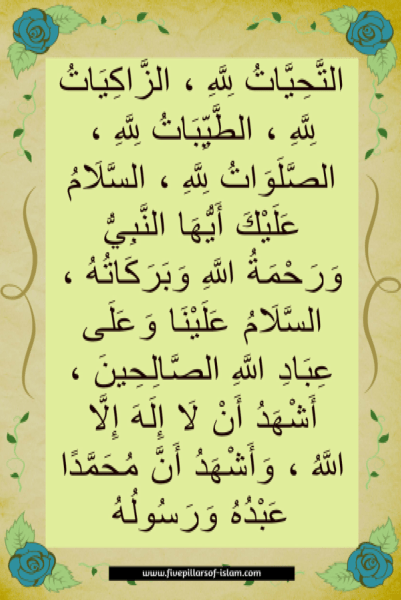 التَّحِيَّاتُ لِلَّهِ ، الزَّاكِيَاتُ
لِلَّهِ ، الطَّيِّبَاتُ لِلَّهِ ،
الصَّلَوَاتُ لِلَّهِ ، السَّلَامُ
عَلَيْكَ أَيُّهَا النَّبِيُّ
وَرَحْمَةُ اللَّهِ وَبَرَكَاتُهُ ،
السَّلَامُ عَلَيْنَا وَعَلَى
عِبَادِ اللَّهِ الصَّالِحِينَ ،
أَشْهَدُ أَنْ لَا إِلَهَ إِلَّا
اللَّهُ ، وَأَشْهَدُ أَنَّ مُحَمَّدًا
عَبْدُهُ وَرَسُولُهُ
www.fivepillarsof-islam.com